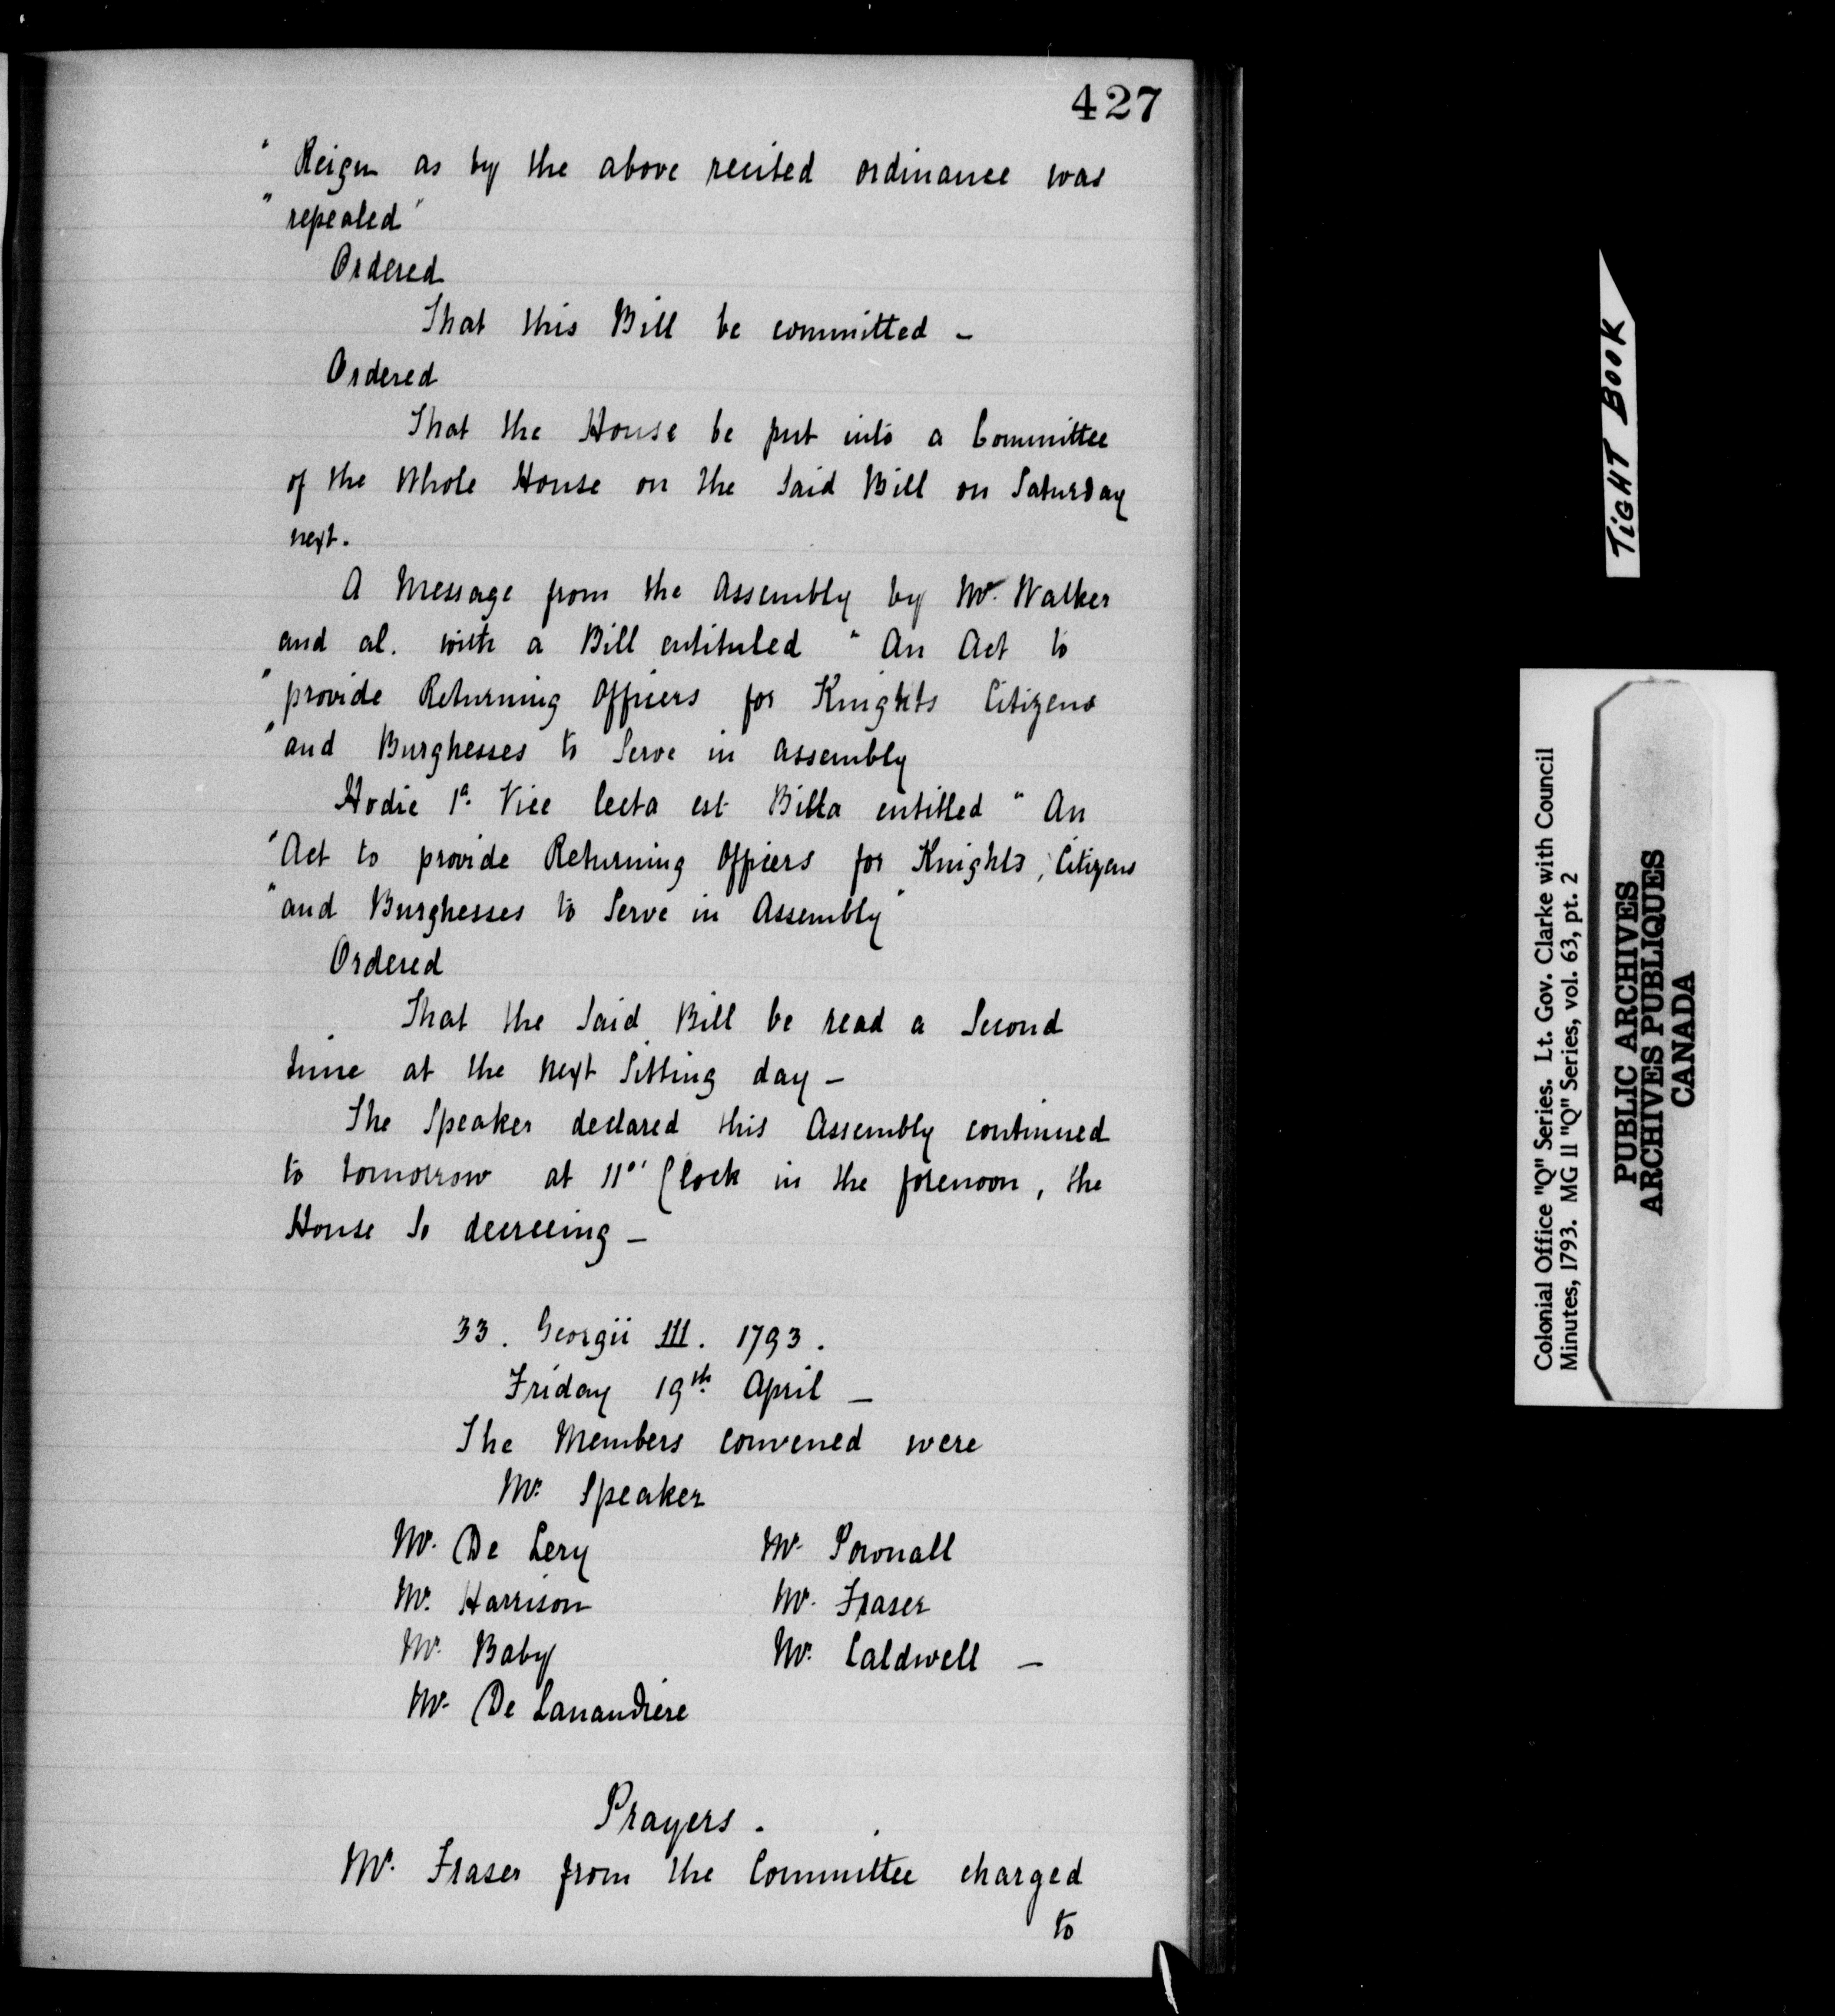 427
" Reign as by the above recited ordinance was
" repealed "
Ordered
That this Bill be committed –
Ordered
That the House be put into a Committee
of the Whole House on the Said Bill on Saturday
next.
A Message from the Assembly by Mr. Walker
and al. with a Bill entituled " An Act to
" provide Returning Officers for Knights Citizens
" and Burghesses to Serve in Assembly
Hodie 1a. Vice lecta est Billa entitled " An
" Act to provide Returning Officers for Knights, Citizens
" and Burghesses to Serve in Assembly "
Ordered
That the Said Bill be read a Second
time at the next Sitting day –
The Speaker declared this Assembly continued
to tomorrow at 11 o' Clock in the forenoon, the
House So decreeing –
33. Georgii III. 1793.
Friday 19th. April –
The Members convened were
Mr. Speaker
Mr. De Lery Mr. Pownall
Mr. Harrison Mr. Fraser
Mr. Baby Mr. Caldwell –
Mr. De Lanaudiere
Prayers.
Mr. Fraser from the Committee charged
to
TiGHT BOOK
Colonial Office "Q" Series. Lt. Gov. Clarke with Council
Minutes, 1793. MG 11 "Q" Series, vol. 63, pt. 2
PUBLIC ARCHIVES
ARCHIVES PUBLIQUES
CANADA